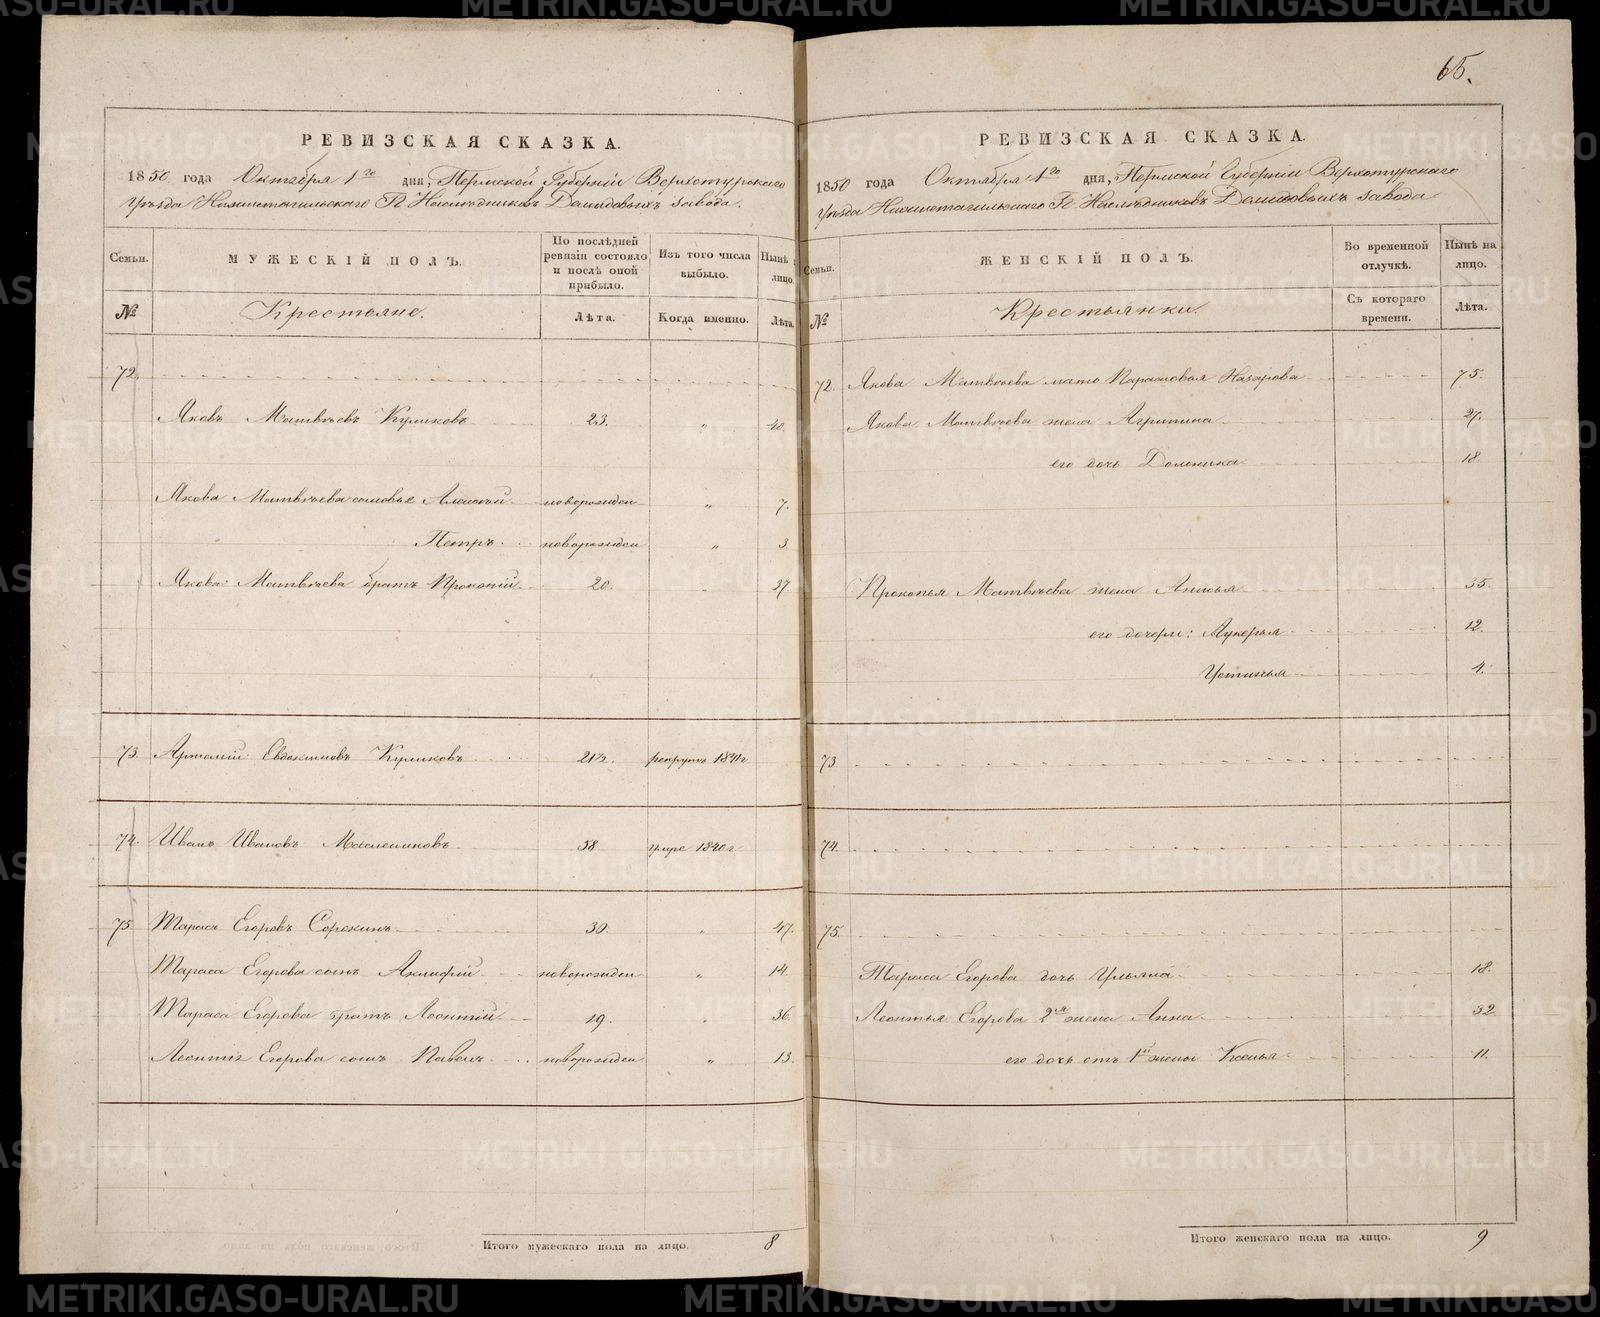 65.
РЕВИЗСКАЯ СКАЗКА.
1850 года Октября 1го дня, Пермской Губернiи Верхотурскаго
Уѣзда Нижнетагильскаго Гг. Наслѣдниковъ Демидовыхъ завода.
Семьи. МУЖЕСКIЙ ПОЛЪ. По послѣдней ревизiи состояло и послѣ оной прибыло. Изъ того числа выбыло. Нынѣ лицо.
№ Крестьяне. Лѣта. Когда именно. Лѣта.
72.
Яковъ Матвѣевъ Куликовъ 23. " 40.
Якова Матвѣева сыновья Алексѣй новорожден " 7.
Петръ новорожден " 3.
Якова Матвѣева братъ Прокопiй 20. " 37.
73. Артемiй Евдокимовъ Куликовъ 21½. рекрутъ 1841г
74. Иванъ Ивановъ Масленниковъ 38 умре 1840г
75. Тарасъ Егоровъ Сорокинъ 30. " 47.
Тараса Егорова сынъ Акинфiй новорожден " 14.
Тараса Егорова братъ Леонтiй 19. " 36.
Леонтiя Егорова сынъ Павелъ новорожден " 13.
Итого мужескаго пола на лицо. 8
РЕВИЗСКАЯ СКАЗКА.
1850 года Октября 1го дня, Пермской Губернiи Верхотурскаго
Уѣзда Нижнетагильскаго Гг. Наслѣдниковъ Демидовыхъ завода
Семьи. ЖЕНСКIЙ ПОЛЪ. Во временной отлучкѣ. Нынѣ на лицо.
№ Крестьянки. Съ котораго времени. Лѣта.
72. Якова Матвѣева мать Парасковья Назарова 75.
Якова Матвѣева жена Агрипина 27.
его дочь Домника 18.
Прокопья Матвѣева жена Анисья 35.
его дочери: Лукерья 12.
Устинья 4.
73.
74.
75.
Тараса Егорова дочь Ульяна 18.
Леонтья Егорова 2я жена Анна 32.
его дочь отъ 1й жены Ксенья 11.
Итого женскаго пола на лицо. 9
METRIKI.GASO-URAL.RU